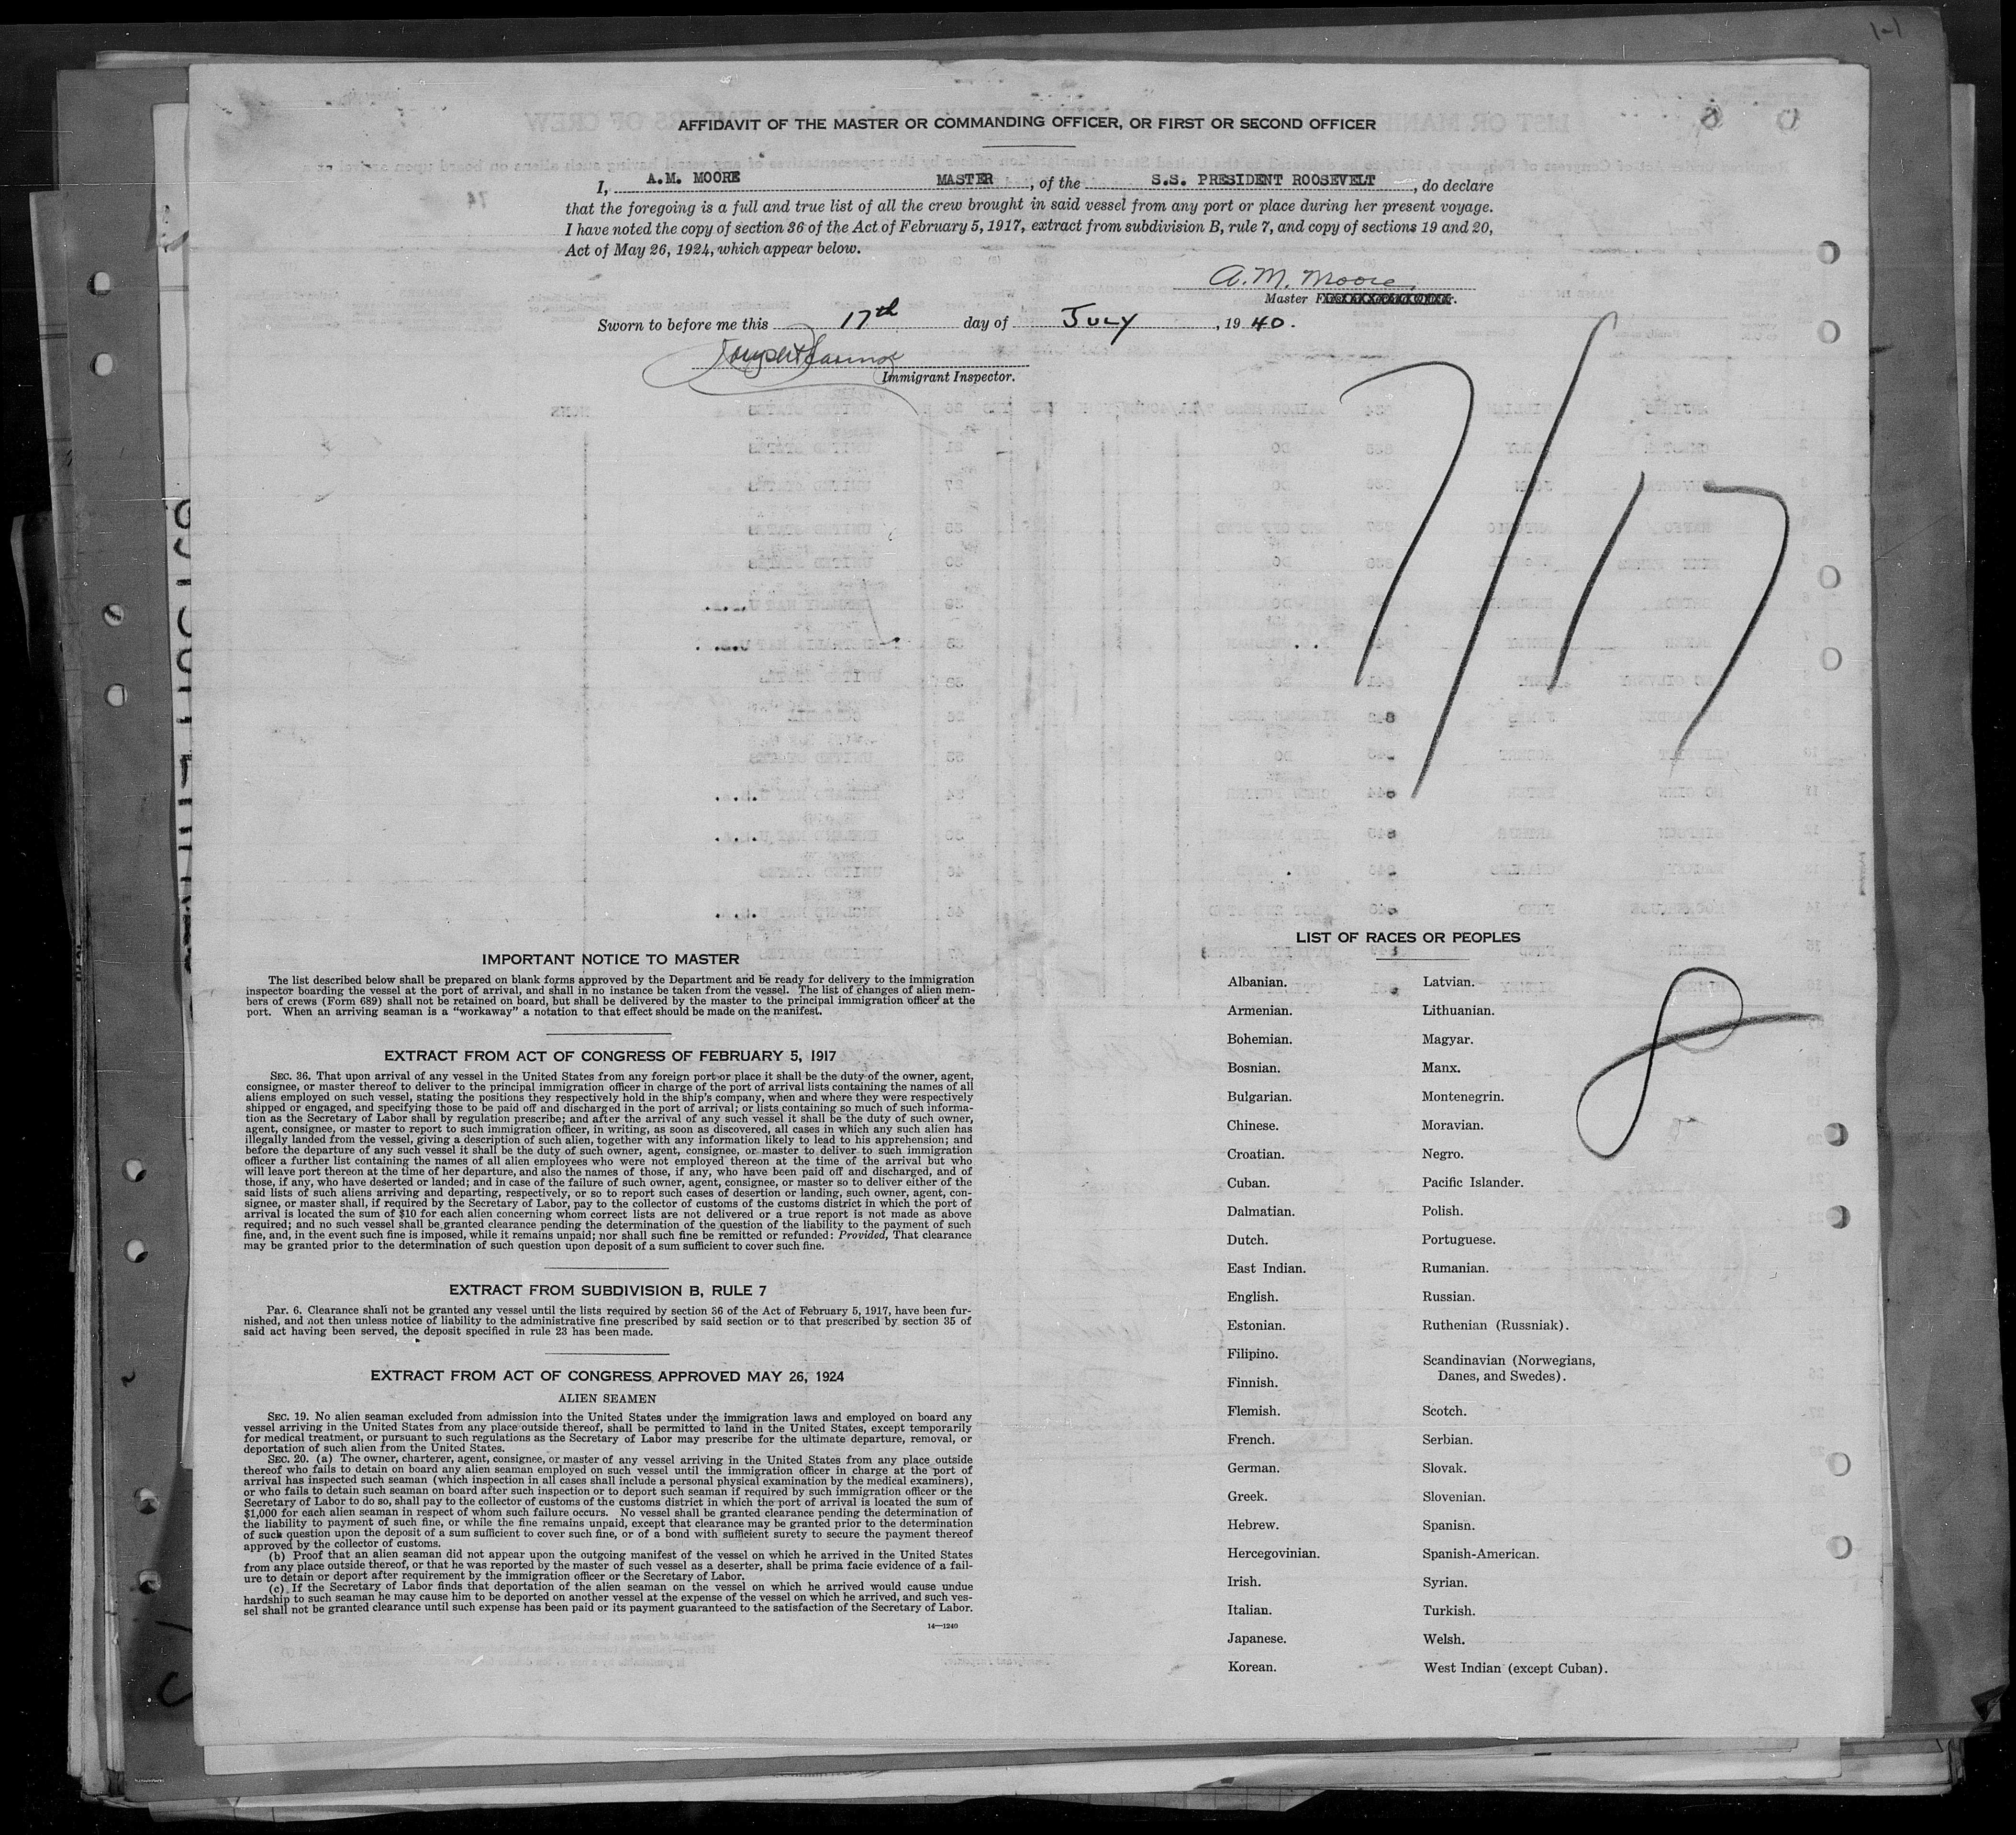 AFFIDAVIT OF THE MASTER OR COMMANDING OFFICER, OR FIRST OR SECOND OFFICER
I, A.M. MOORE MASTER, of the S.S. PRESIDENT ROOSEVELT, do declare
that the foregoing is a full and true list of all the crew brought in said vessel from any port or place during her present voyage.
I have noted the copy of section 36 of the Act of February 5, 1917, extract from subdivision B, rule 7, and copy of sections 19 and 20,
Act of May 26, 1924, which appear below.
A. M. Moore.
Master
Sworn to before me this 17th day of JULY, 1940.
Immigrant Inspector.
7/17
IMPORTANT NOTICE TO MASTER
The list described below shall be prepared on blank forms approved by the Department and be ready for delivery to the immigration
inspector boarding the vessel at the port of arrival, and shall in no instance be taken from the vessel. The list of changes of alien mem-
bers of crews (Form 689) shall not be retained on board, but shall be delivered by the master to the principal immigration officer at the
port. When an arriving seaman is a "workaway" a notation to that effect should be made on the manifest.
EXTRACT FROM ACT OF CONGRESS OF FEBRUARY 5, 1917
SEC. 36. That upon arrival of any vessel in the United States from any foreign port or place it shall be the duty of the owner, agent,
consignee, or master thereof to deliver to the principal immigration officer in charge of the port of arrival lists containing the names of all
aliens employed on such vessel, stating the positions they respectively hold in the ship's company, when and where they were respectively
shipped or engaged, and specifying those to be paid off and discharged in the port of arrival; or lists containing so much of such informa-
tion as the Secretary of Labor shall by regulation prescribe; and after the arrival of any such vessel it shall be the duty of such owner,
agent, consignee, or master to report to such immigration officer, in writing, as soon as discovered, all cases in which any such alien has
illegally landed from the vessel, giving a description of such alien, together with any information likely to lead to his apprehension; and
before the departure of any such vessel it shall be the duty of such owner, agent, consignee, or master to deliver to such immigration
officer a further list containing the names of all alien employees who were not employed thereon at the time of the arrival but who
will leave port thereon at the time of her departure, and also the names of those, if any, who have been paid off and discharged, and of
those, if any, who have deserted or landed; and in case of the failure of such owner, agent, consignee, or master so to deliver either of the
said lists of such aliens arriving and departing, respectively, or so to report such cases of desertion or landing, such owner, agent, con-
signee, or master shall, if required by the Secretary of Labor, pay to the collector of customs of the customs district in which the port of
arrival is located the sum of $10 for each alien concerning whom correct lists are not delivered or a true report is not made as above
required; and no such vessel shall be granted clearance pending the determination of the question of the liability to the payment of such
fine, and, in the event such fine is imposed, while it remains unpaid; nor shall such fine be remitted or refunded: Provided, That clearance
may be granted prior to the determination of such question upon deposit of a sum sufficient to cover such fine.
EXTRACT FROM SUBDIVISION B, RULE 7
Par. 6. Clearance shall not be granted any vessel until the lists required by section 36 of the Act of February 5, 1917, have been fur-
nished, and not then unless notice of liability to the administrative fine prescribed by said section or to that prescribed by section 35 of
said act having been served, the deposit specified in rule 23 has been made.
EXTRACT FROM ACT OF CONGRESS APPROVED MAY 26, 1924
ALIEN SEAMEN
SEC. 19. No alien seaman excluded from admission into the United States under the immigration laws and employed on board any
vessel arriving in the United States from any place outside thereof, shall be permitted to land in the United States, except temporarily
for medical treatment, or pursuant to such regulations as the Secretary of Labor may prescribe for the ultimate departure, removal, or
deportation of such alien from the United States.
SEC. 20. (a) The owner, charterer, agent, consignee, or master of any vessel arriving in the United States from any place outside
thereof who fails to detain on board any alien seaman employed on such vessel until the immigration officer in charge at the port of
arrival has inspected such seaman (which inspection in all cases shall include a personal physical examination by the medical examiners),
or who fails to detain such seaman on board after such inspection or to deport such seaman if required by such immigration officer or the
Secretary of Labor to do so, shall pay to the collector of customs of the customs district in which the port of arrival is located the sum of
$1,000 for each alien seaman in respect of whom such failure occurs. No vessel shall be granted clearance pending the determination of
the liability to payment of such fine, or while the fine remains unpaid, except that clearance may be granted prior to the determination
of such question upon the deposit of a sum sufficient to cover such fine, or of a bond with sufficient surety to secure the payment thereof
approved by the collector of customs.
(b) Proof that an alien seaman did not appear upon the outgoing manifest of the vessel on which he arrived in the United States
from any place outside thereof, or that he was reported by the master of such vessel as a deserter, shall be prima facie evidence of a fail-
ure to detain or deport after requirement by the immigration officer or the Secretary of Labor.
(c) If the Secretary of Labor finds that deportation of the alien seaman on the vessel on which he arrived would cause undue
hardship to such seaman he may cause him to be deported on another vessel at the expense of the vessel on which he arrived, and such ves-
sel shall not be granted clearance until such expense has been paid or its payment guaranteed to the satisfaction of the Secretary of Labor.
14—1240
LIST OF RACES OR PEOPLES
Albanian.
Armenian.
Bohemian.
Bosnian.
Bulgarian.
Chinese.
Croatian.
Cuban.
Dalmatian.
Dutch.
East Indian.
English.
Estonian.
Filipino.
Finnish.
Flemish.
French.
German.
Greek.
Hebrew.
Hercegovinian.
Irish.
Italian.
Japanese.
Korean.
Latvian.
Lithuanian.
Magyar.
Manx.
Montenegrin.
Moravian.
Negro.
Pacific Islander.
Polish.
Portuguese.
Rumanian.
Russian.
Ruthenian (Russniak).
Scandinavian (Norwegians,
Danes, and Swedes).
Scotch.
Serbian.
Slovak.
Slovenian.
Spanish.
Spanish-American.
Syrian.
Turkish.
Welsh.
West Indian (except Cuban).
8